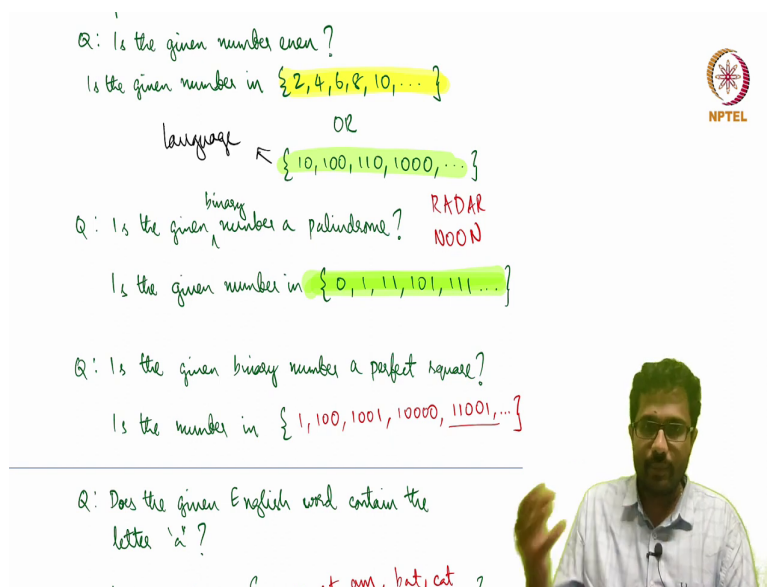 Q: Is the given number even?
Is the given number in {2, 4, 6, 8, 10, ... }
OR
language ← {10, 100, 110, 1000, ... }
Q: Is the given binary number a palindrome?
RADAR
NOON
Is the given number in {0, 1, 11, 101, 111 ... }
Q: Is the given binary number a perfect square?
Is the number in {1, 100, 1001, 10000, 11001, ... }
Q: Does the given English word contain the
letter 'a'?
am, bat, cat
NPTEL